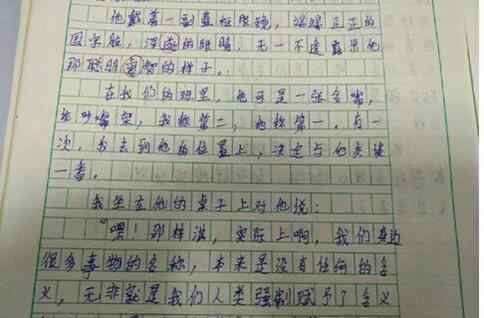 他戴着一副黑框眼镜，端端正正的
国字脸，深邃的眼睛，无一不透露出他
那聪明的样子。
在我们的班里，他可是一张名嘴，
论吵嘴架，我称第二，他称第一，有一
次，我去到他座位置上，决定与他
一番。
我坐在他的桌子上对他说：
“喂！那样说，实际上啊，我们身边
很多事物的名称，本来是没有任何的含
义，无非就是我们人类强制赋予了含义